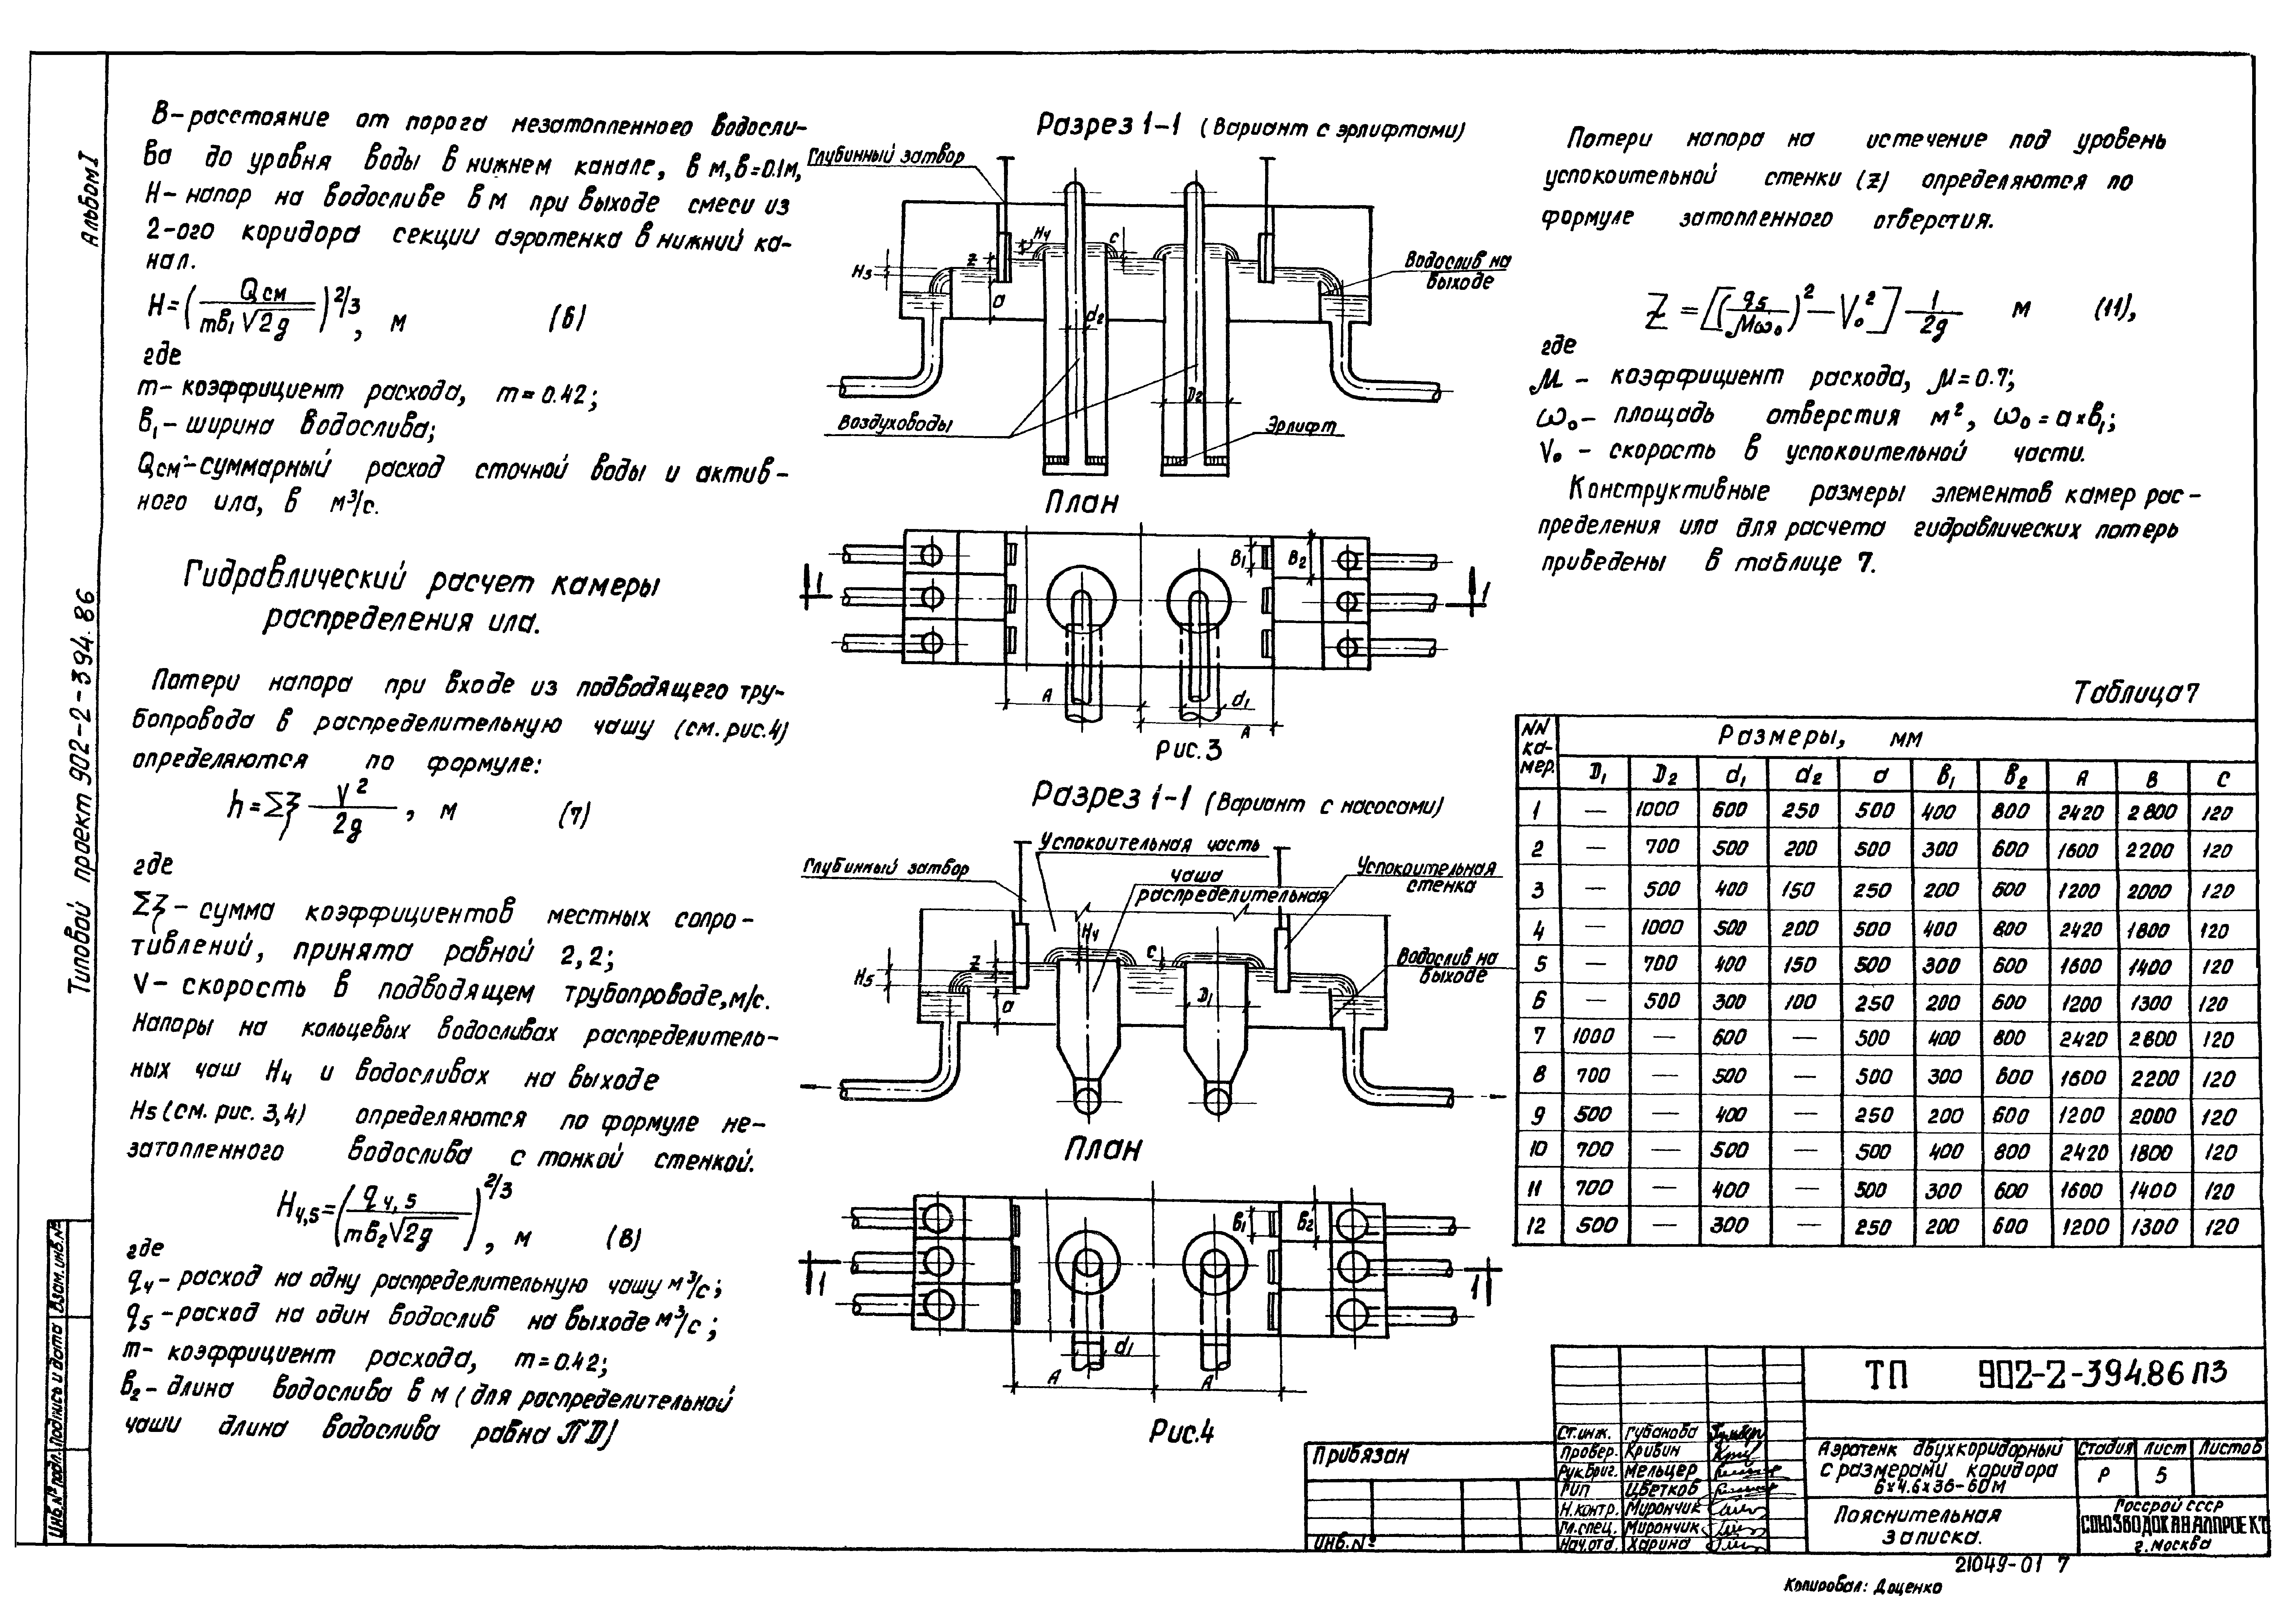 Альбом I
Типовой проект 902-2-394.86
Инв.№ подл. Подпись и дата Взам.инв.№
В-расстояние от порога незатопленного водосли-
ва до уровня воды в нижнем канале, в м, в=0.1м,
Н- напор на водосливе в м при выходе смеси из
2-ого коридора секции аэротенка в нижний ка-
нал.
H=(Qсм / mв₁√2g)^2/3, м (6)
где
m- коэффициент расхода, m=0.42;
в₁- ширина водослива;
Qсм-суммарный расход сточной воды и актив-
ного ила, в м³/с.
Гидравлический расчет камеры
распределения ила.
Потери напора при входе из подводящего тру-
бопровода в распределительную чашу (см. рис.4)
определяются по формуле:
h=Σξ V²/2g, м (7)
где
Σξ- сумма коэффициентов местных сопро-
тивлений, принята равной 2,2;
V- скорость в подводящем трубопроводе, м/с.
Напоры на кольцевых водосливах распределитель-
ных чаш H₄ и водосливах на выходе
H₅ (см. рис. 3,4) определяются по формуле не-
затопленного водослива с тонкой стенкой.
H₄,₅=(q₄,₅ / mв₂√2g)^2/3, м (8)
где
q₄- расход на одну распределительную чашу м³/с;
q₅-расход на один водослив на выходе м³/с;
m- коэффициент расхода, m=0.42;
в₂- длина водослива в м (для распределительной
чаши длина водослива равна πD)
Разрез 1-1 (Вариант с эрлифтами)
Глубинный затвор
H₄
C
z
H₅
a
Водослив на
выходе
d₂
D₂
Воздуховоды
Эрлифт
План
в₁
в₂
1
1
A
d₁
A
Рис.3
Разрез 1-1 (Вариант с насосами)
Успокоительная часть
Глубинный затвор
чаша
распределительная
Успокоительная
стенка
H₄
C
z
H₅
a
D₁
Водослив на
выходе
План
в₁
в₂
1
1
d₁
A
A
Рис.4
Потери напора на истечение под уровень
успокоительной стенки (z) определяются по
формуле затопленного отверстия.
Z=[(q₅/μω₀)²-V₀²] 1/2g м (11),
где
μ - коэффициент расхода, μ=0.7;
ω₀- площадь отверстия м², ω₀=a×в₁;
V₀ - скорость в успокоительной части.
Конструктивные размеры элементов камер рас-
пределения ила для расчета гидравлических потерь
приведены в таблице 7.
Таблица 7
NN ка-мер. Размеры, мм
D₁ D₂ d₁ d₂ a в₁ в₂ A B C
1 — 1000 600 250 500 400 800 2420 2800 120
2 — 700 500 200 500 300 600 1600 2200 120
3 — 500 400 150 250 200 600 1200 2000 120
4 — 1000 500 200 500 400 800 2420 1800 120
5 — 700 400 150 500 300 600 1600 1400 120
6 — 500 300 100 250 200 600 1200 1300 120
7 1000 — 600 — 500 400 800 2420 2800 120
8 700 — 500 — 500 300 600 1600 2200 120
9 500 — 400 — 250 200 600 1200 2000 120
10 700 — 500 — 500 400 800 2420 1800 120
11 700 — 400 — 500 300 600 1600 1400 120
12 500 — 300 — 250 200 600 1200 1300 120
Привязан
Инв.№
Ст.инж. Губанова
Провер. Кривин
Рук.бриг. Мельцер
Гип Цветков
Н.контр. Мирончик
Гл.спец. Мирончик
Нач.отд. Харина
ТП 902-2-394.86 ПЗ
Аэротенк двухкоридорный
с размерами коридора
6×4.6×36-60м
Стадия Лист Листов
Р 5
Пояснительная
записка.
Госстрой СССР
СОЮЗВОДОКАНАЛПРОЕКТ
г.Москва
21049-01 7
Копировал: Доценко